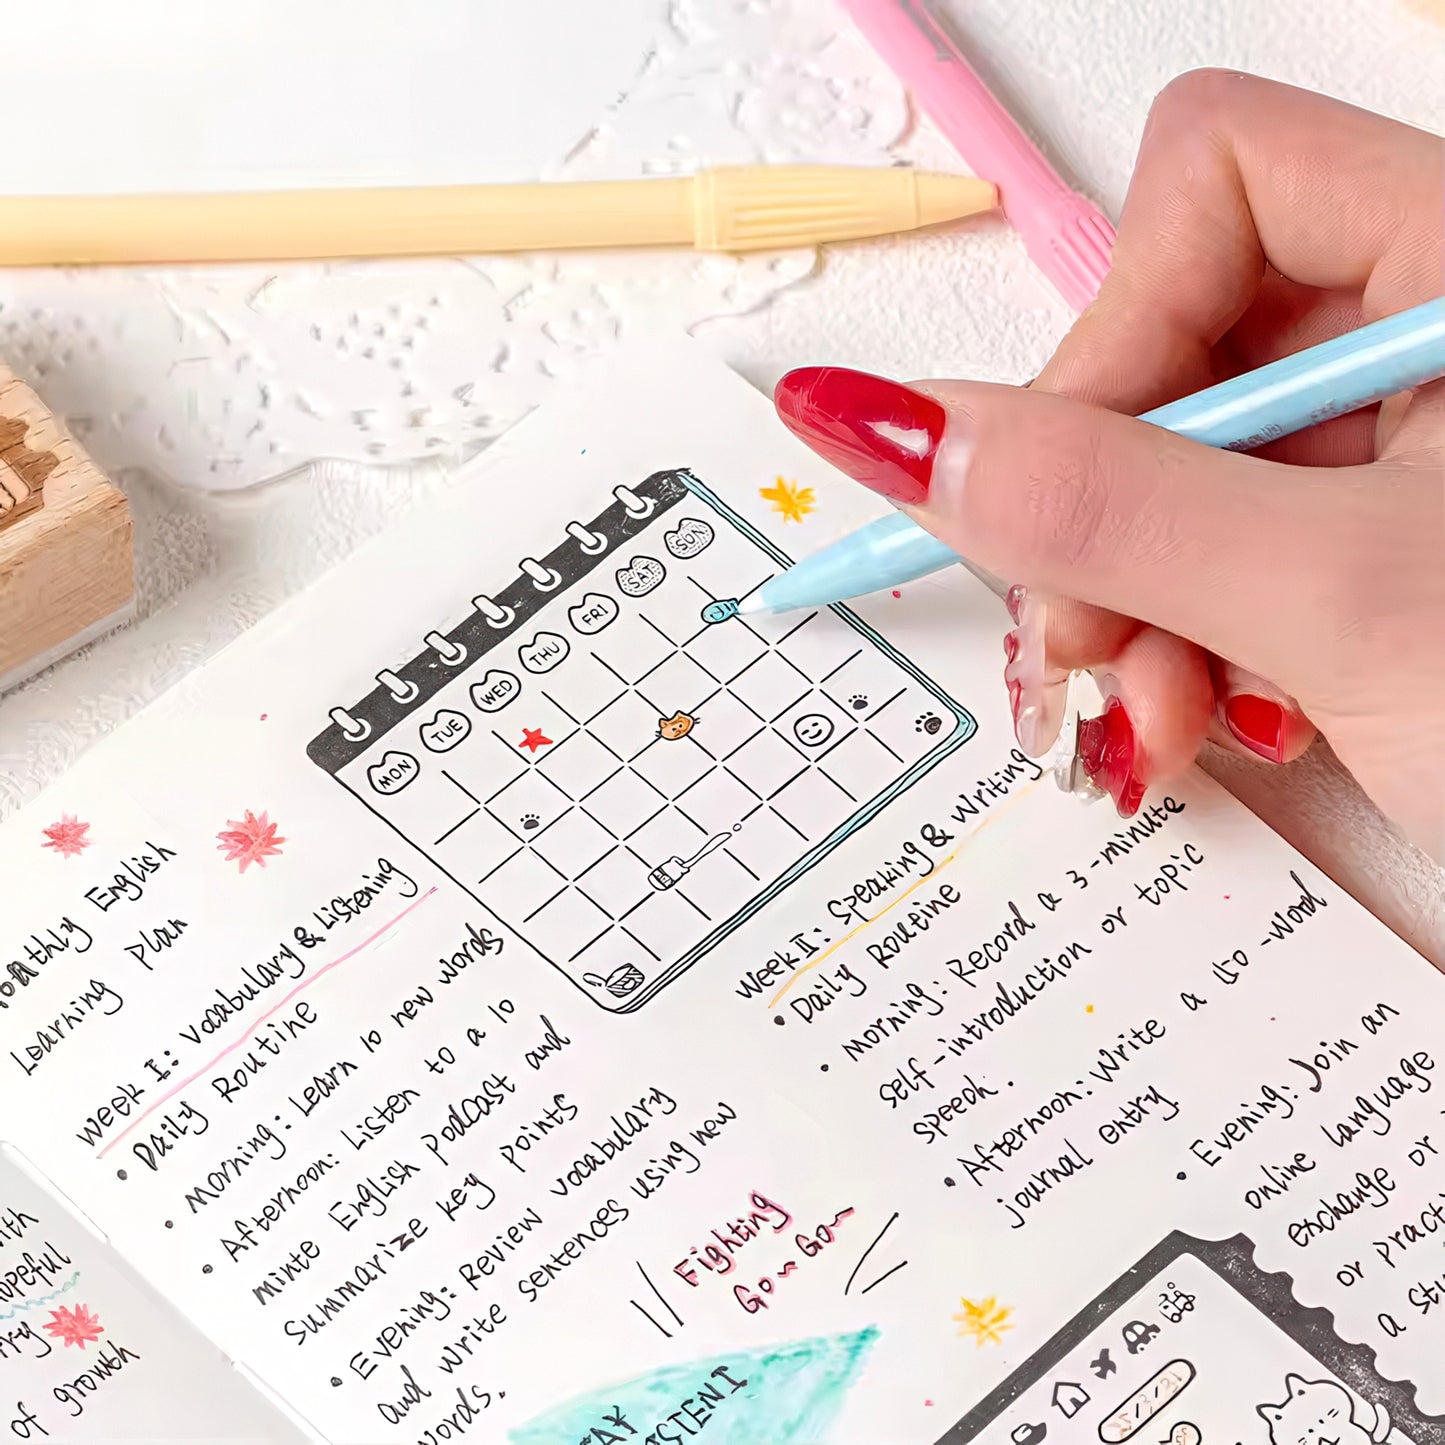 MON TUE WED THU FRI SAT SUN
Monthly English
Learning plan
Week I: Vocabulary & Listening
• Daily Routine
• Morning: Learn 10 new words
• Afternoon: Listen to a 10
minte English podcast and
summarize key points
• Evening: Review vocabulary
and write sentences using new
words.
Week II: Speaking & Writing
• Daily Routine
• Morning: Record a 3-minute
self-introduction or topic
speech.
• Afternoon: Write a 150-word
journal entry
• Evening: Join an
online language
exchange or
or
a
Fighting
Go~Go~
with
hopeful
of growth
25/3/31